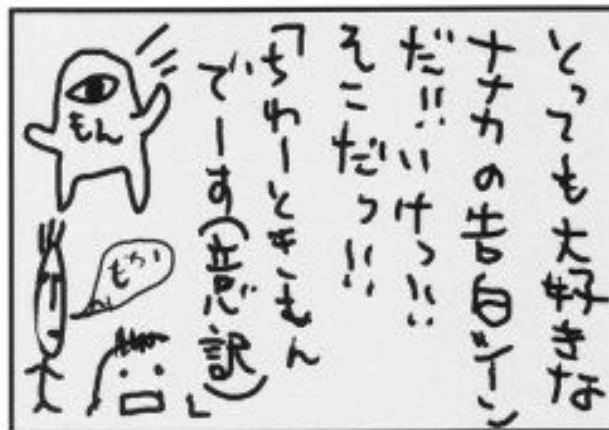 とっても大好きな
ナナカの告白シーン
だ!!いけっ!!
そこだっ!!
「ちわーときもん
でーす(意訳)」
もん